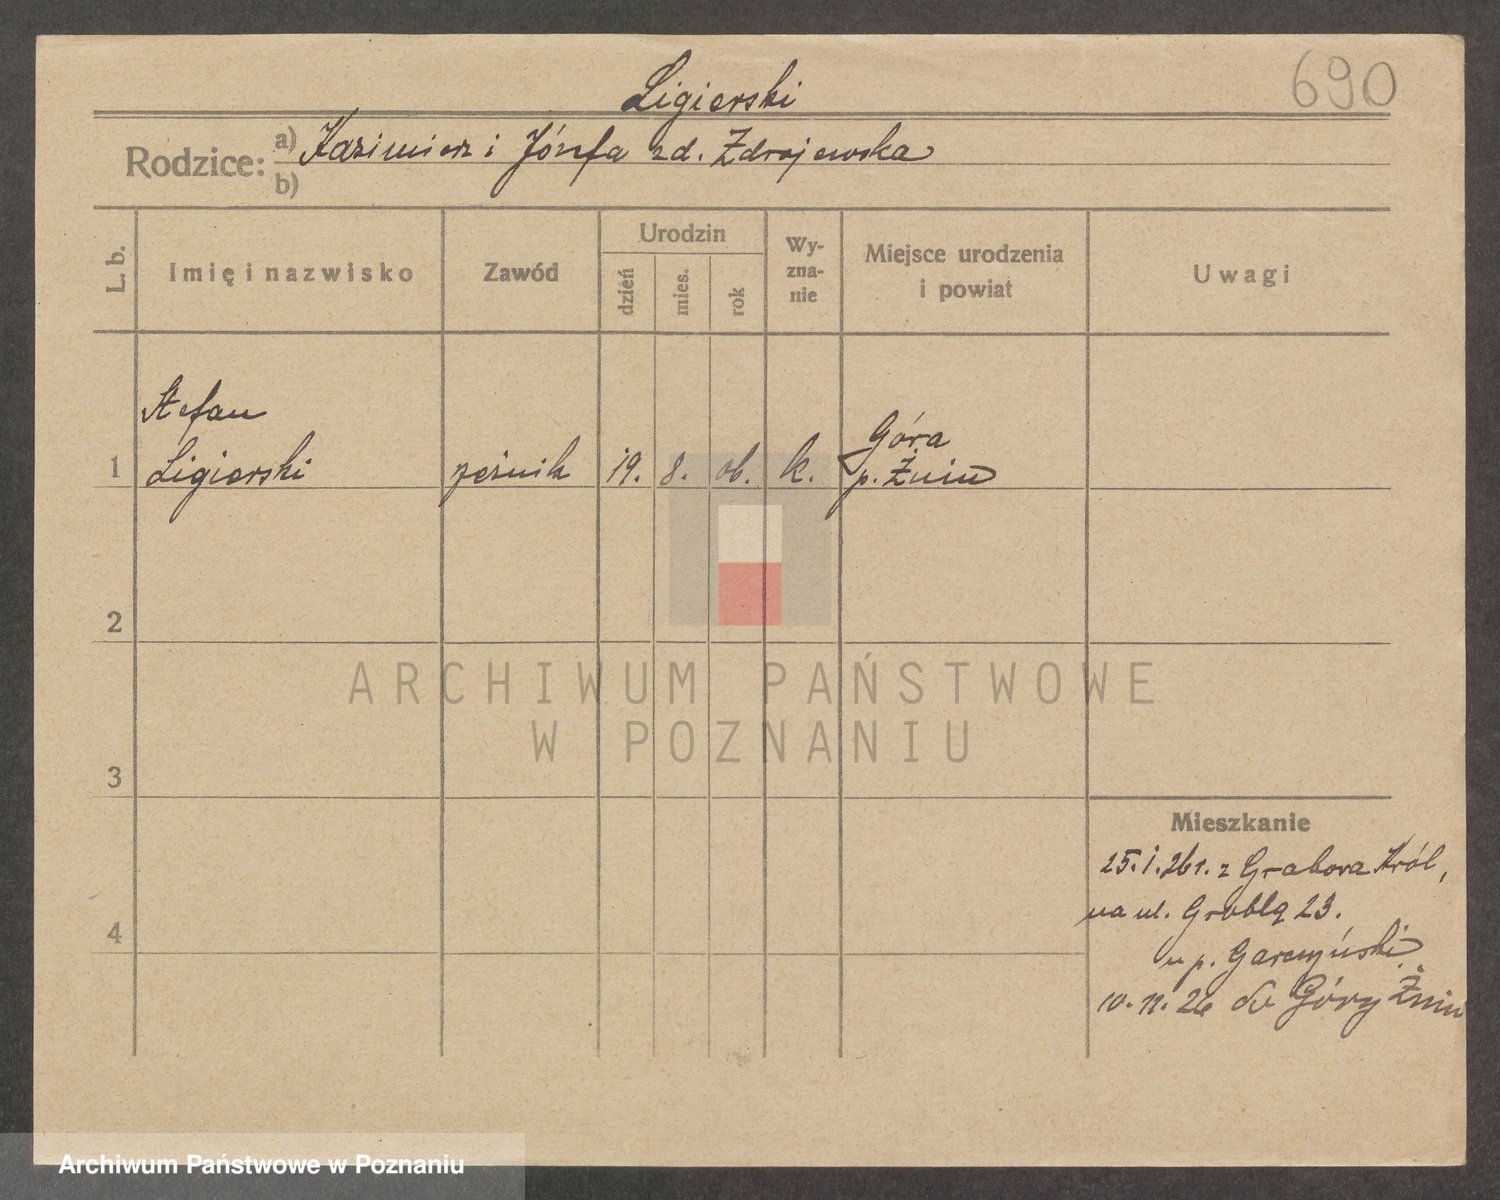 690
Ligierski
Rodzice: a) Kazimierz i Józefa zd. Zdrojewska
b)
L. b.
Imię i nazwisko
Zawód
Urodzin
dzień
mies.
rok
Wy-
zna-
nie
Miejsce urodzenia
i powiat
Uwagi
Stefan
1 Ligierski
rzeźnik 19. 8. 06. k.
Góra
p. Żnin
2
3
4
Mieszkanie
25.1.26 r. z Grabova Król,
na ul. Groblą 23.
u p. Garczyński
10.11.26 do Góry Żnin
ARCHIWUM PAŃSTWOWE
W POZNANIU
Archiwum Państwowe w Poznaniu